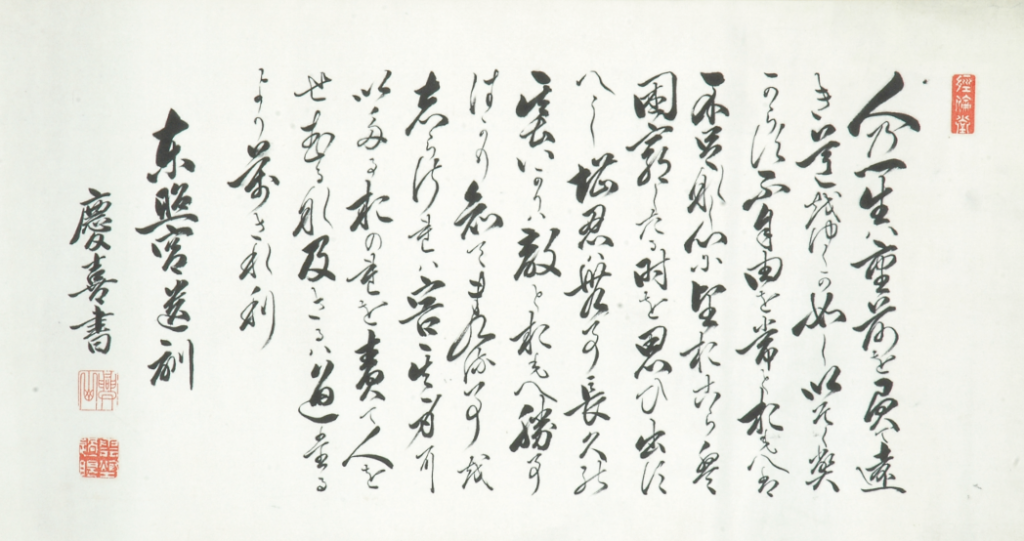 人乃一生ハ重荷を負て遠
き道をゆくか如しいそくへ
からす不自由を常とおもへハ
不足なし心に望おこらハ
困窮したる時を思ひ出す
へし堪忍ハ無事長久の
基いかりハ敵とおもへ勝事
はかり知てまくる事を
しらされハ害其身に
いたるおのれを責て人を
せむるな及さるハ過たる
よりまされり
東照宮遺訓
慶喜書